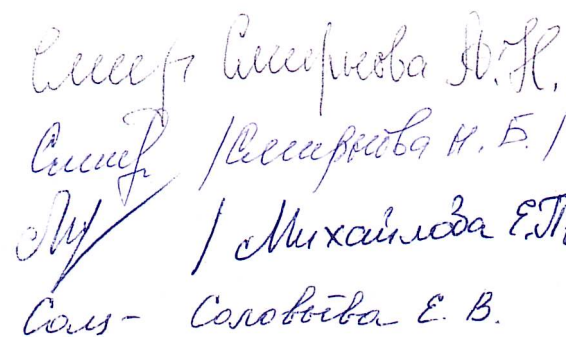 Смир Смирнова Ю.Н.
Смир /Смирнова Н.Б./
/ Михайлова Е.П.
Сол- Соловьёва Е.В.